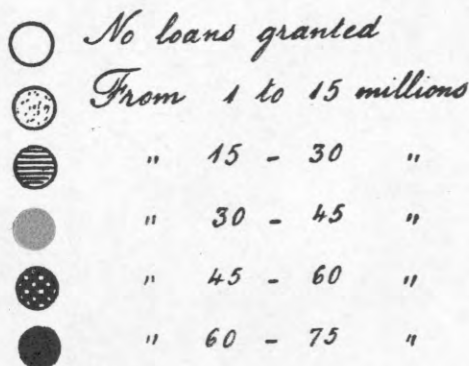 No loans granted
From 1 to 15 millions
" 15 - 30 "
" 30 - 45 "
" 45 - 60 "
" 60 - 75 "